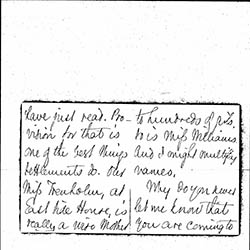 have just read. Pro-
vision for that is
one of the best things
Settlements do. Our
Miss Trenholm, at
East Side House, is
really a vero Mother
to hundreds of girls.
So is Miss Williams
And I might multiply
names.
Why do you never
let me know that
you are coming to